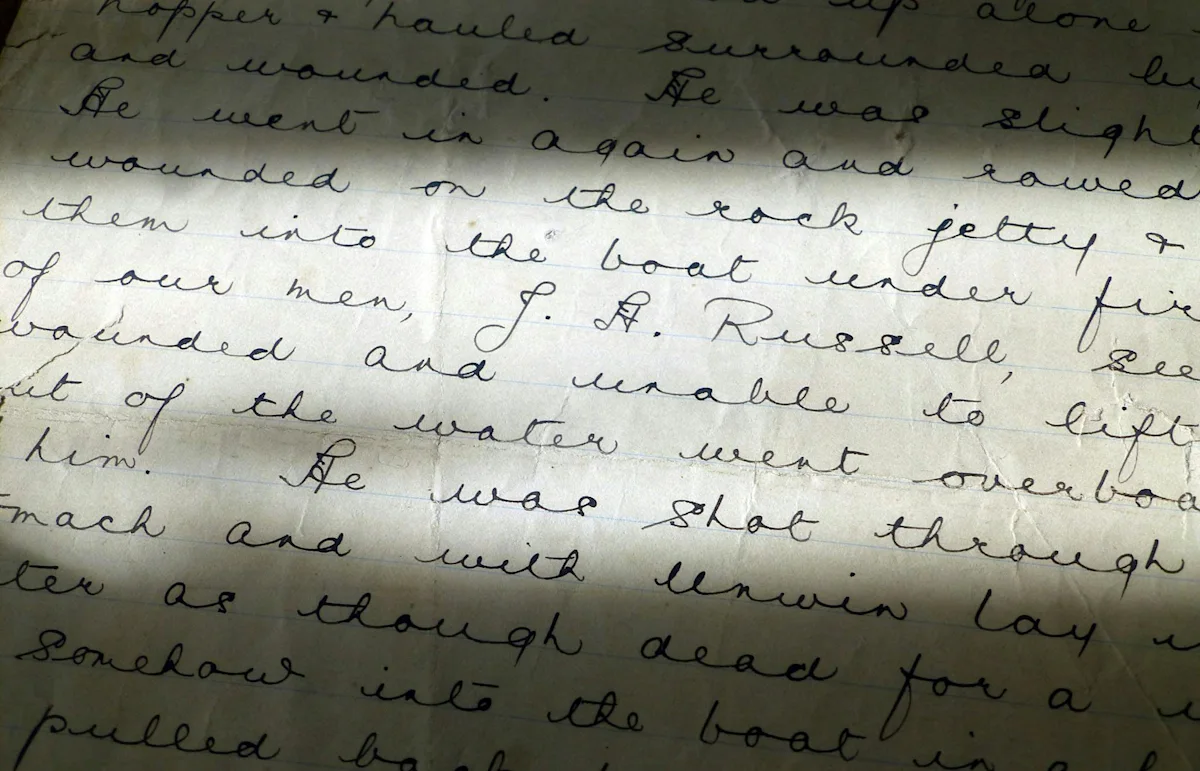 hopper & hauled surrounded by
up alone
and wounded. He was slight
He went in again and rowed
wounded on the rock jetty &
them into the boat under fir
of our men, J. H. Russell, see
wounded and unable to lift
ut of the water went overboa
him. He was shot through
mach and with Unwin lay
ter as though dead for a
somehow into the boat in a
pulled